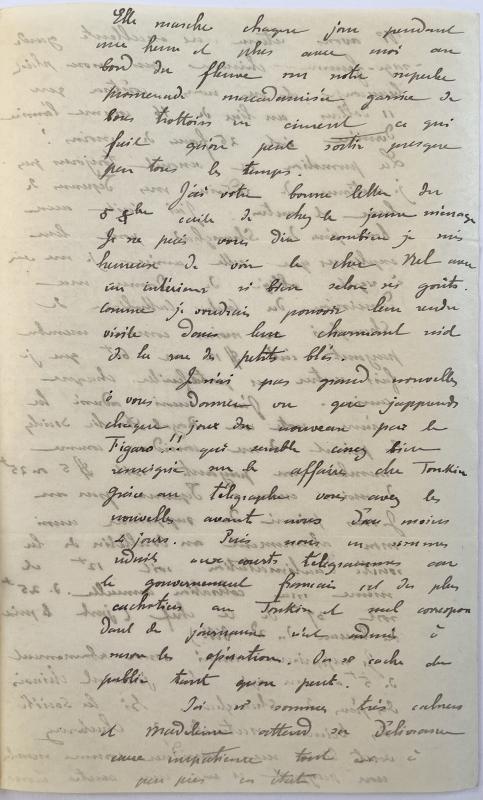 Elle marche chaque jour pendant
une heure et plus avec moi au
bord du fleuve sur notre superbe
promenade macadamisée garnie de
bons trottoirs en ciment ce qui
fait qu'on peut sortir presque
par tous les temps.
J'ai votre bonne lettre du
5 8bre écrite de chez le jeune ménage
Je ne puis vous dire combien je suis
heureuse de voir le cher Nel avec
un intérieur si bien selon ses goûts.
comme je voudrais pouvoir leur rendre
visite dans leur charmant nid
de la rue des petits blés.
Je n'ai pas grand nouvelles
à vous donner vu que j'apprends
chaque jour du nouveau par le
Figaro!! qui semble assez bien
renseigné sur les affaires du Tonkin
Grâce au télégraphe vous avez les
nouvelles avant nous d'au moins
4 jours. Puis nous en sommes
réduits aux courts télégrammes car
le gouvernement français est des plus
cachotiers au Tonkin et nul correspon
dant de journaux n'est admis à
suivre les opérations. On se cache du
public tant qu'on peut.
Ici ns sommes très calmes
et Madeleine attend sa délivrance
sans impatience tout